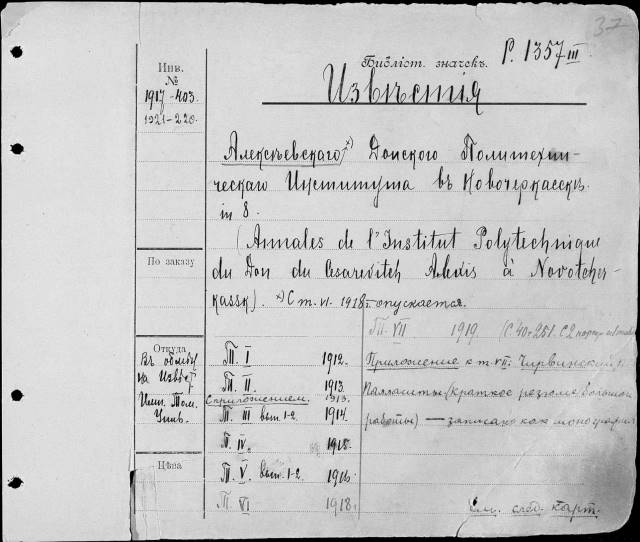 37
Библіот. значекъ.
P. 1357 III
Инв.
№
1917-403.
1921-220.
Извѣстія
Алексѣевскаго *) Донского Политехни-
ческаго Института въ Новочеркасскѣ
in 8.
(Annales de l'Institut Polytechnique
du Don du Cesarevitch Alexis à Novotcher-
kassk). *) С т. VI. 1918 г. опускается.
По заказу
Т. VII 1919. (С. 40+251. С 2
Откуда
Въ обмѣнъ
на Извѣст.
Имп. Том.
Унив.
Т. I 1912.
Т. II. 1913.
С приложением. 1913.
Т. III вып. 1-2. 1914.
Т. IV. 1915.
Т. V. вып. 1-2. 1916
Т. VI 1918.
Приложение к т. VII: Чирвинский,
Палласиты (краткое резюме большой
работы) — записано как монография
Цѣна
См. след. карт.